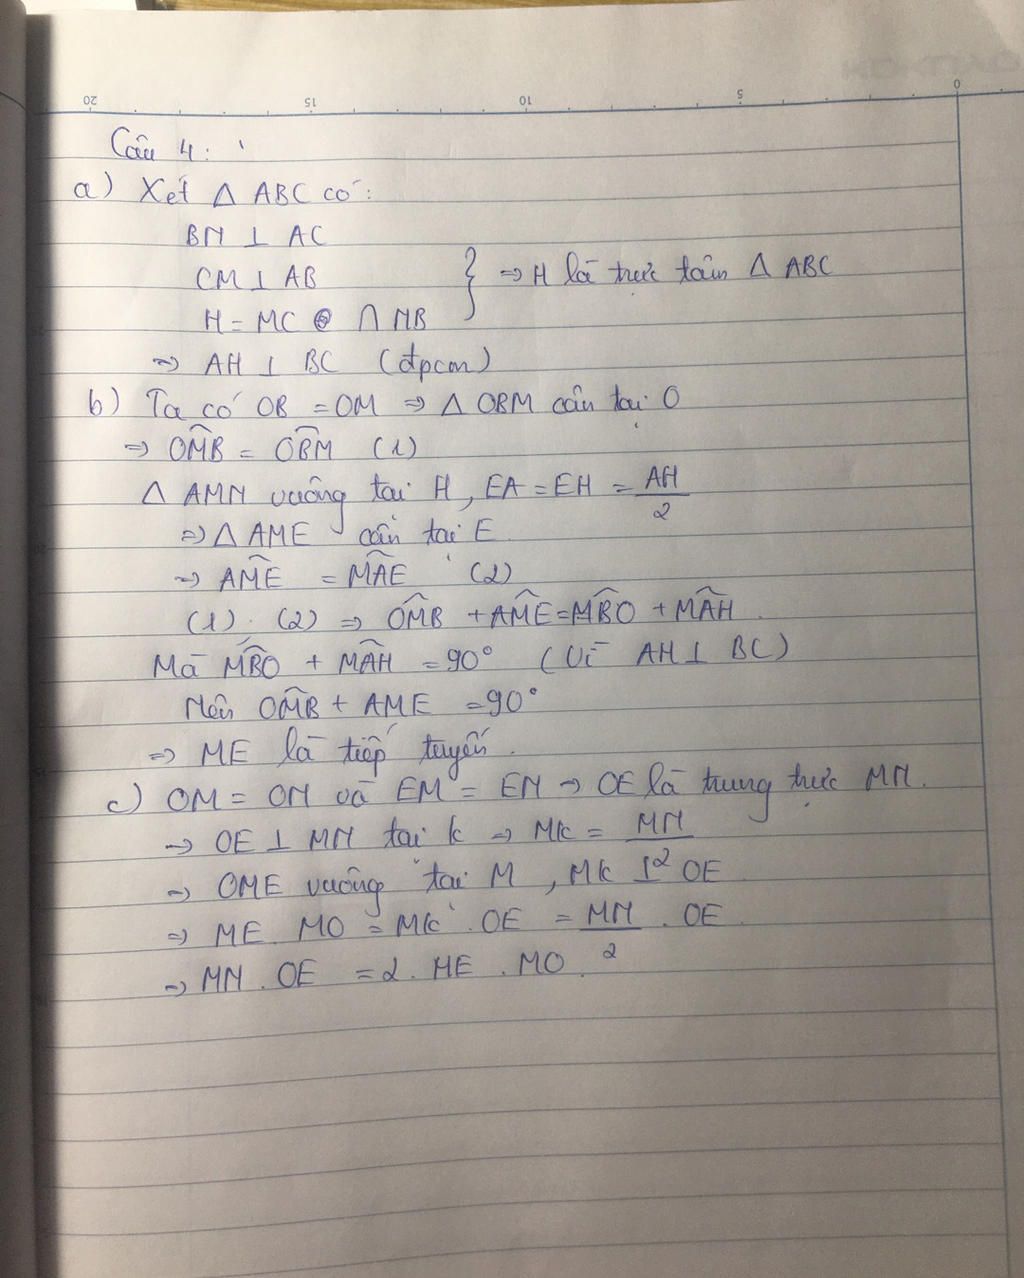 20 15 10 5 0
Câu 4:
a) Xét Δ ABC có:
BN ⊥ AC
CM ⊥ AB
} ⇒ H là trực tâm Δ ABC
H = MC ∩ NB
⇒ AH ⊥ BC (đpcm)
b) Ta có OB = OM ⇒ Δ OBM cân tại O
⇒ OMB = OBM (1)
Δ AMN vuông tại H, EA = EH = AH/2
⇒ Δ AME cân tại E
⇒ AME = MAE (2)
(1). (2) ⇒ OMB + AME = MBO + MAH.
Mà MBO + MAH = 90° (Vì AH ⊥ BC)
Nên OMB + AME = 90°
⇒ ME là tiếp tuyến.
c) OM = ON và EM = EN → OE là trung trực MN.
→ OE ⊥ MN tại k → Mk = MN/2
⇒ OME vuông tại M, Mk ⊥ OE
⇒ ME. MO = Mk. OE = MN/2 . OE
⇒ MN. OE = 2. ME. MO.